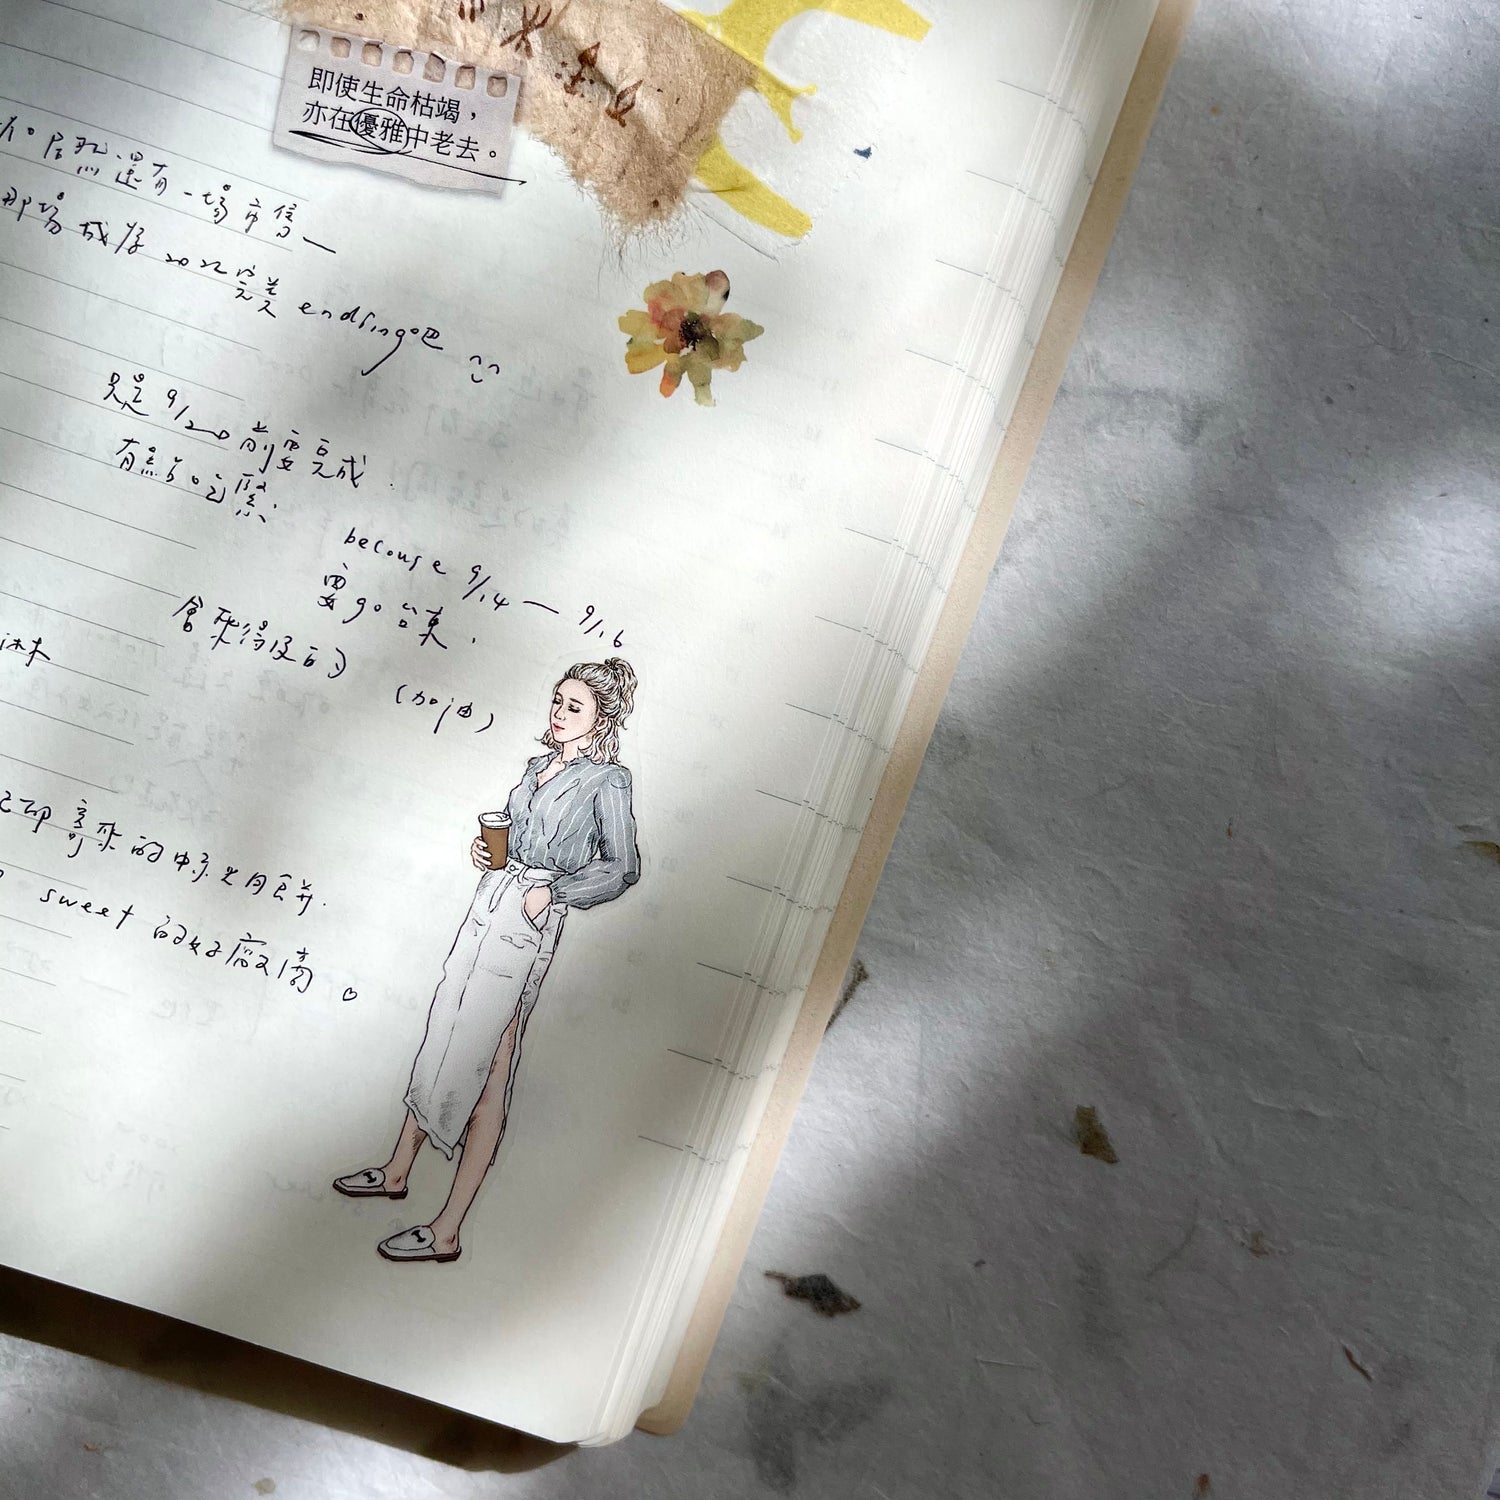 即使生命枯竭，
亦在優雅中老去。
居然還有一場市售—
那場成為2022完美 ending吧
只是 9/20 前要完成.
有點句吃緊
because 9/14 — 9/16
要 go 台東.
會來得及的
(加油)
寄來的中秋月餅.
sweet 的好廠商 ♡